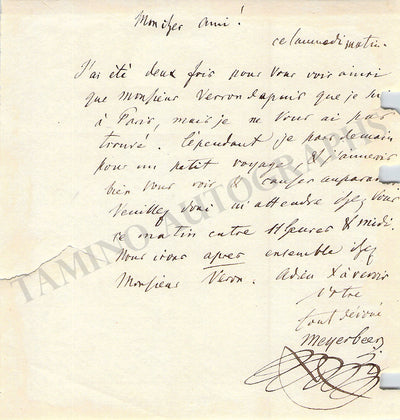 Mon cher ami!
ce samedi matin.
J'ai été deux fois pour Vous voir ainsi
que Monsieur Verron depuis que je suis
à Paris, mais je ne Vous ai pas
trouvé. Cependant je pars demain
pour un petit voyage, & j'aimerois
bien Vous voir & causer auparavant.
Veuillez donc m'attendre chez Vous
ce matin entre 11 heures & midi.
Nous irons après ensemble chez
Monsieur Veron. Adieu & à revoir
Votre
tout dévoué
Meyerbeer
TAMINO AUTOGRAPHS